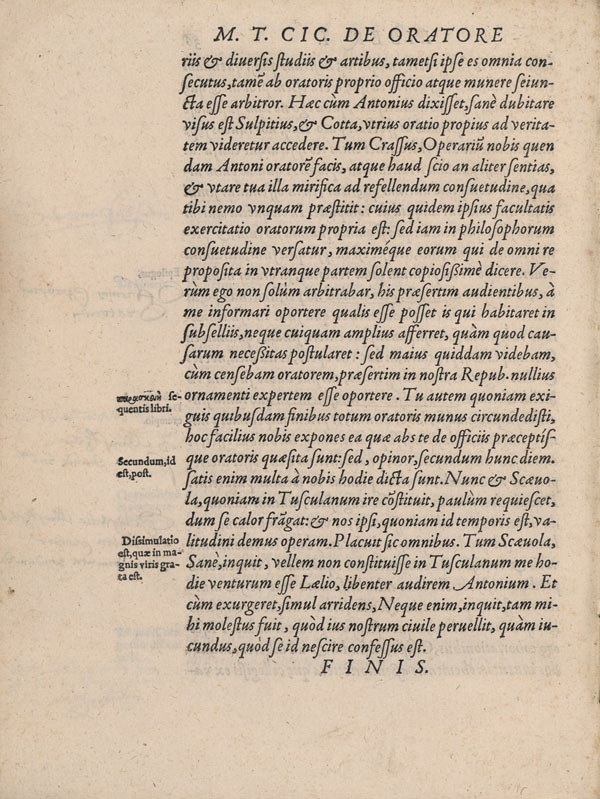 M. T. CIC. DE ORATORE
riis & diuersis studiis & artibus, tametsi ipse es omnia con-
secutus, tamẽ ab oratoris proprio officio atque munere seiun-
cta esse arbitror. Hæc cùm Antonius dixisset, sanè dubitare
visus est Sulpitius, & Cotta, vtrius oratio propius ad verita-
tem videretur accedere. Tum Crassus, Operariũ nobis quen
dam Antoni oratorẽ facis, atque haud scio an aliter sentias,
& vtare tua illa mirifica ad refellendum consuetudine, qua
tibi nemo vnquam præstitit: cuius quidem ipsius facultatis
exercitatio oratorum propria est: sed iam in philosophorum
consuetudine versatur, maximéque eorum qui de omni re
proposita in vtranque partem solent copiosissimè dicere. Ve-
rùm ego non solùm arbitrabar, his præsertim audientibus, à
me informari oportere qualis esse posset is qui habitaret in
subselliis, neque cuiquam amplius afferret, quàm quod cau-
sarum necessitas postularet: sed maius quiddam videbam,
cùm censebam oratorem, præsertim in nostra Repub. nullius
ornamenti expertem esse oportere. Tu autem quoniam exi-
guis quibusdam finibus totum oratoris munus circundedisti,
hoc facilius nobis expones ea quæ abs te de officiis præceptís-
que oratoris quæsita sunt: sed, opinor, secundum hunc diem.
satis enim multa à nobis hodie dicta sunt. Nunc & Scæuo-
la, quoniam in Tusculanum ire cõstituit, paulùm requiescet,
dum se calor frãgat: & nos ipsi, quoniam id temporis est, va-
litudini demus operam. Placuit sic omnibus. Tum Scæuola,
Sanè, inquit, vellem non constituisse in Tusculanum me ho-
die venturum esse Lælio, libenter audirem Antonium. Et
cùm exurgeret, simul arridens, Neque enim, inquit, tam mi-
hi molestus fuit, quòd ius nostrum ciuile peruellit, quàm iu-
cundus, quòd se id nescire confessus est.
FINIS.
se-
quentis libri.
Secundum, id
est, post.
Dissimulatio
est, quæ in ma-
gnis viris gra-
ta est.